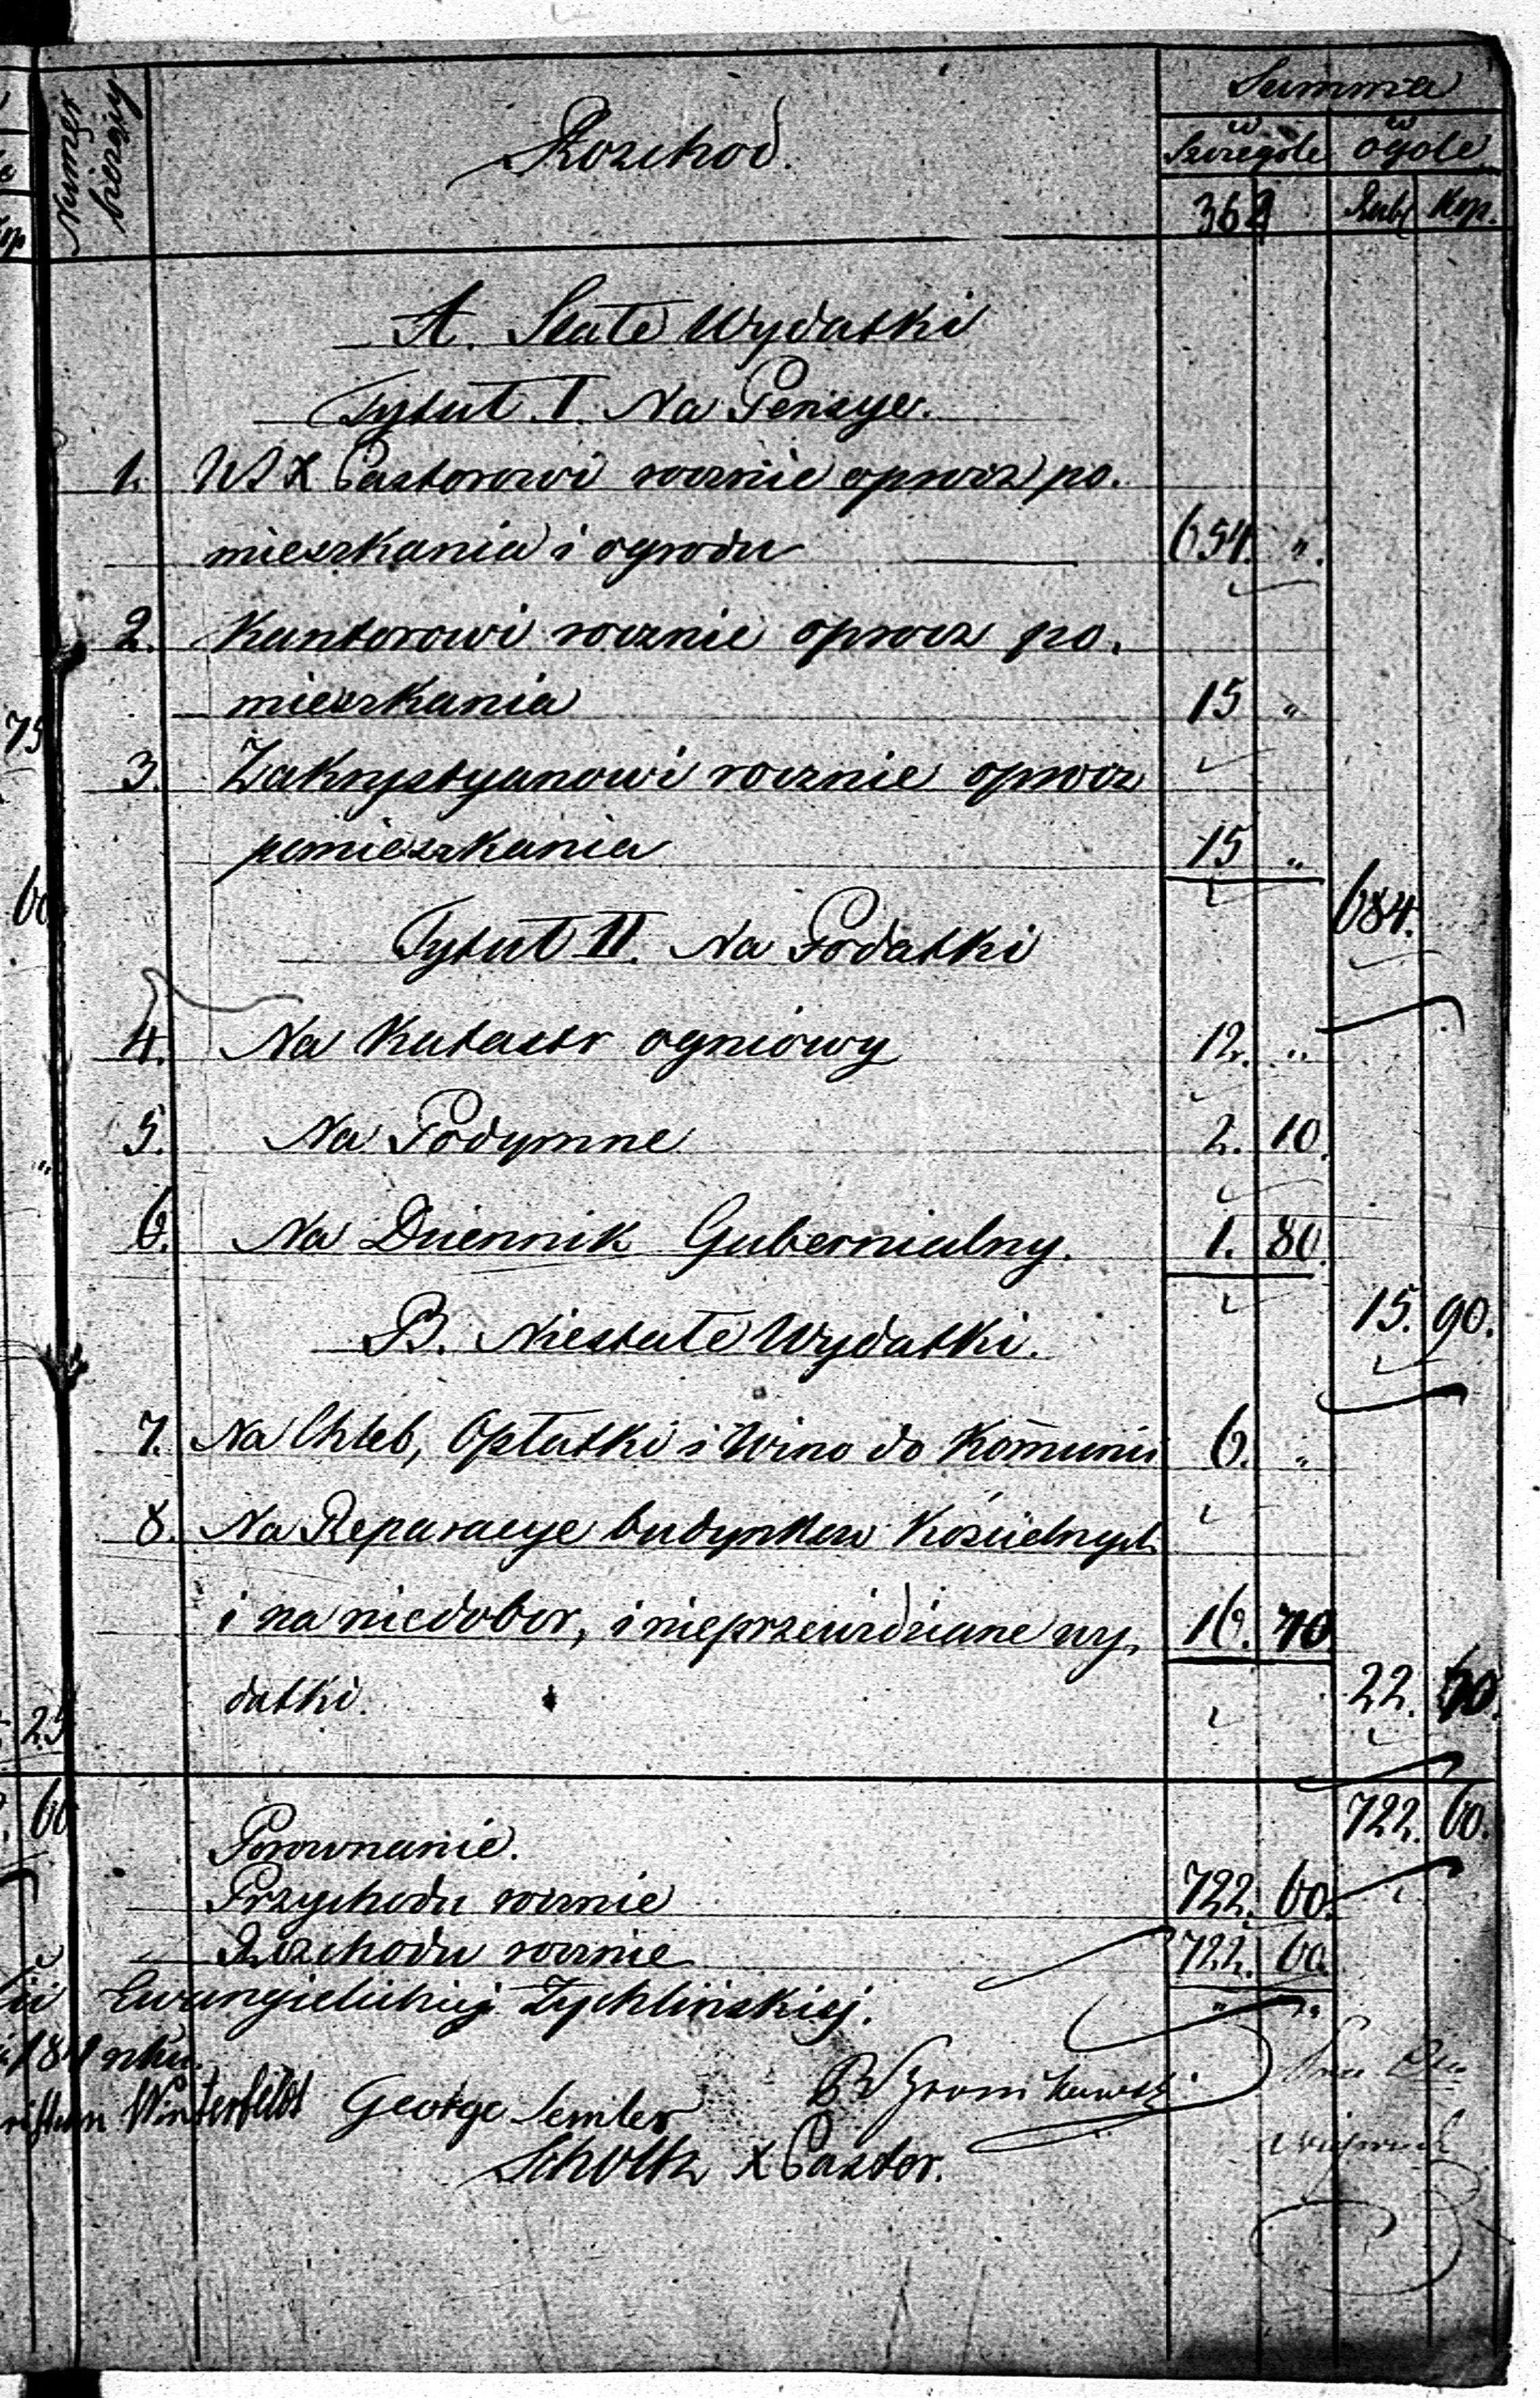 Numer bieżący
Rozchod.
Summa
w Szczegole
w ogole
Rubl Kop.
A. Stałe Wydatki
Tytuł I. Na Pensye.
1. WJX Pastorowi rocznie oprocz po-
mieszkania i ogrodu 654. "
2. Kantorowi rocznie oprocz po-
mieszkania 15 "
3. Zakrystyanowi rocznie oprocz
pomieszkania 15 "
684.
Tytuł II. Na Podatki
4. Na Katastr ogniowy 12. "
5. Na Podymne 2. 10.
6. Na Dziennik Gubernialny. 1. 80.
15. 90.
B. Niestałe Wydatki.
7. Na Chleb, Opłatki i Wino do Komunii 6. "
8. Na Reparacye budynkow Kościelnych
i na niedobor, i nieprzewidziane wy- 16. 70
datki. 22. 70.
722. 60.
Porownanie.
Przychodu rocznie 722. 60.
Rozchodu rocznie 722. 60.
" "
Ewangielickiej Zychlińskiej.
roku.
Winterfeldt George Semler
Scholtz X Pastor.